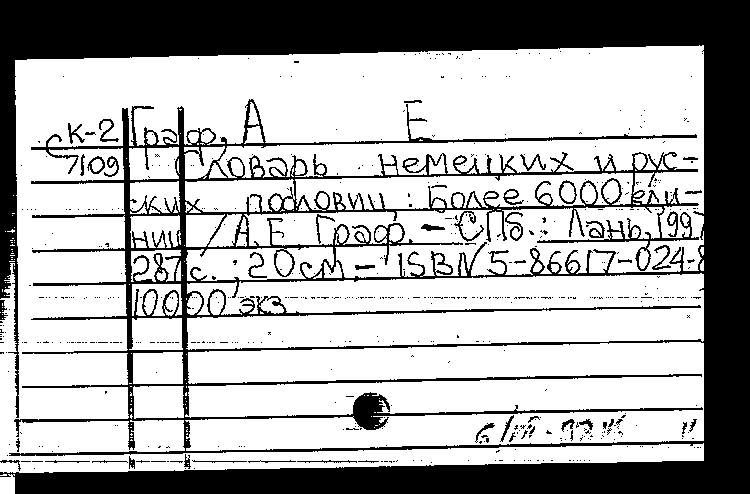 СК-2 Граф, А Е
7109 Словарь немецких и рус-
ских пословиц : Более 6000 еди-
ниц / А. Е. Граф. - СПб. : Лань, 1997
287 с. ; 20 см. - ISBN 5-86617-024-8
10000 экз.